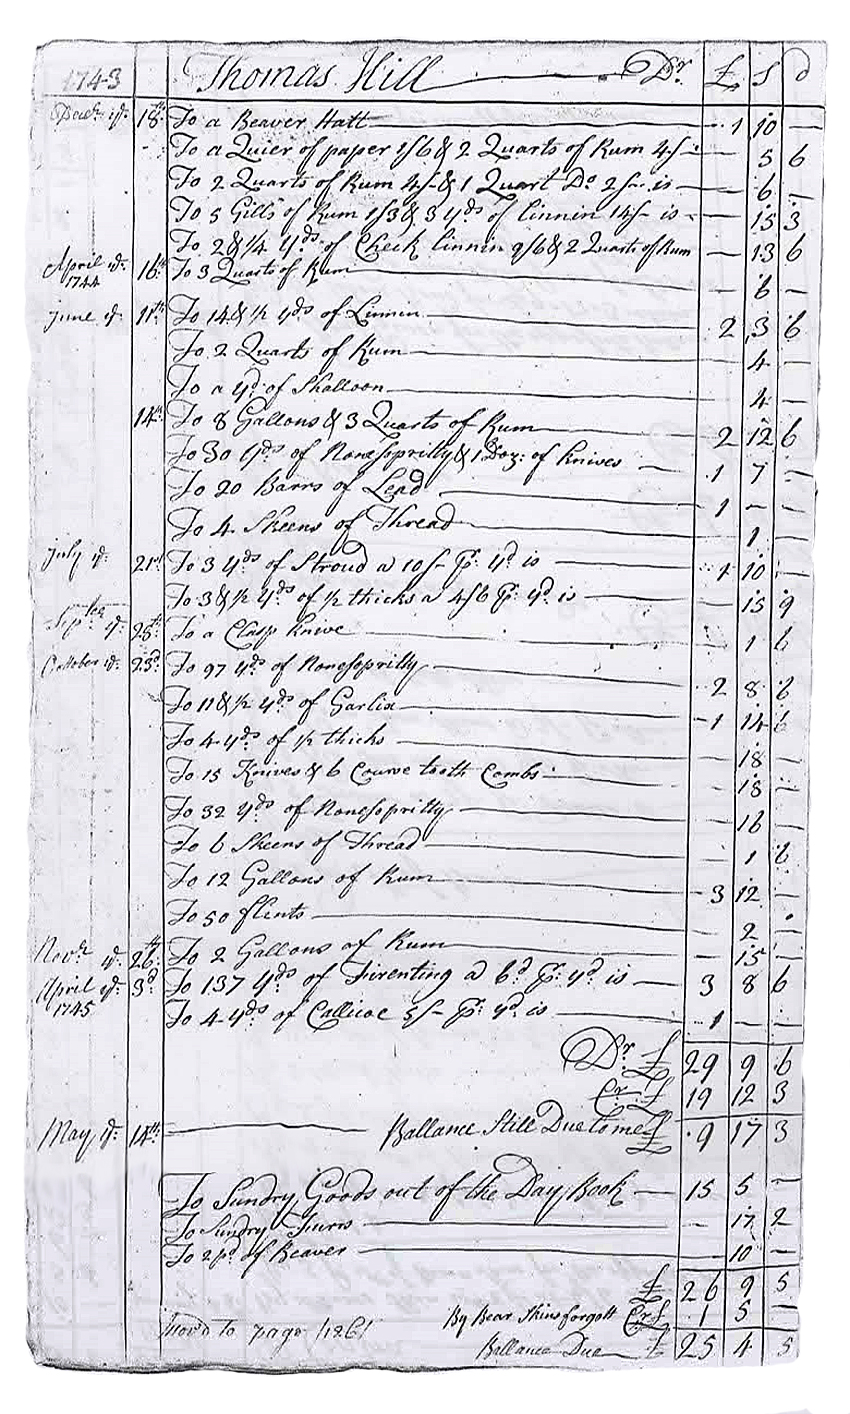 1743 Thomas Hill Dr. £ S d
Decbr. ye. 18th. To a Beaver Hatt 1 10 —
To a Quier of paper 1/6 & 2 Quarts of Rum 4/- — 5 6
To 2 Quarts of Rum 4/- & 1 Quart Do. 2/- is — 6 —
To 5 Gills of Rum 1/3 & 3 yds of linnin 14/- is — 15 3
To 2 & 1/4 yds of Check linnin 9/6 & 2 Quarts of Rum — 13 6
April ye. 1744 16th. To 3 Quarts of Rum 6 —
June ye. 11th. To 14 & 1/2 yds of Linnin 2 3 6
To 2 Quarts of Rum 4 —
To a yd. of Shalloon 4 —
14th. To 8 Gallons & 3 Quarts of Rum 2 12 6
To 30 yds of Nonesopritty & 1 Doz: of Knives — 1 7 —
To 20 Barrs of Lead 1 — —
To 4 Skeens of Thread 1 —
July ye. 21st. To 3 yds of Stroud a 10/- Pr. yd. is 1 10 —
To 3 & 1/2 yds of 1/2 thicks a 4/6 Pr. yd. is — 15 9
Septber ye. 25th. To a Clasp Knive 1 6
October ye. 23d. To 97 yds of Nonesopritty 2 8 6
To 11 & 1/2 yds of Garlix 1 14 6
To 4 yds of 1/2 thicks 18 —
To 15 Knives & 6 Course tooth Combs 18 —
To 32 yds of Nonesopritty 16 —
To 6 Skeens of Thread 1 6
To 12 Gallons of Rum 3 12 —
To 50 flints 2
Novbr. ye. 26th. To 2 Gallons of Rum — 15 —
April ye. 1745 3d. To 137 yds of firenting a 6d. Pr. yd. is — 3 8 6
To 4 yds of Callicoe 5/- Pr. yd. is 1 — —
Dr. £ 29 9 6
Cr. £ 19 12 3
May ye. 14th. Ballance Still Due to me £ 9 17 3
To Sundry Goods out of the Day Book — 15 5 —
To Sundry Furrs — 17 2
To 2 pd. of Beaver 10 —
£ 26 9 5
By Bear Skins forgott Cr £ 1 5 —
Mov'd to page (126) Ballance Due £ 25 4 5